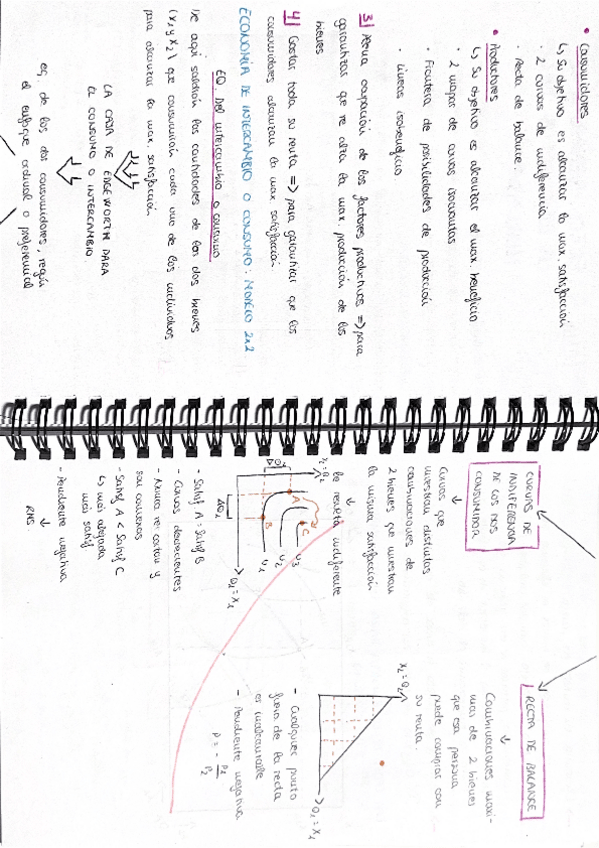 • Consumidores
↳ Su objetivo es alcanzar la max. satisfacción
· 2 curvas de indiferencia
· Recta de balance.
• Productores
↳ Su objetivo es alcanzar el max. beneficio
· 2 mapas de curvas isocuantas
· Frontera de posibilidades de producción
· Líneas isobeneficio
3) Plena ocupación de los factores productivos => para
garantizar que se alza la max. producción de los
bienes
4) Gastar toda su renta => para garantizar que los
consumidores alcanzan la max. satisfacción.
ECONOMÍA DE INTERCAMBIO O CONSUMO: MODELO 2x2
EQ. Del intercambio o consumo
De aquí saldrán las cantidades de los dos bienes
(x1 y x2) que consumirán cada uno de los individuos
para alcanzar la max. satisfacción
LA CAJA DE EDGEWORTH PARA
EL CONSUMO O INTERCAMBIO
eq. de los dos consumidores, según
el enfoque ordinal o preferencial
CURVAS DE
INDIFERENCIA
DE LOS DOS
CONSUMIDOR
↓
Curvas que
muestran distintas
combinaciones de
2 bienes que muestran
la misma satisfacción
↓
le resulta indiferente
A
B
C
U1
U2
U3
Q1 = X1
· Satisf A = Satisf B
- Curvas decrecientes
- Nunca se cortan y
son convexas
- Satisf A < Satisf C
↳ más alejada
más satisf
- Pendiente negativa
↓
RMS
RECTA DE BALANCE
↓
Combinaciones maxi-
mas de 2 bienes
que esa persona
puede comprar con
su renta.
X2 = Q2
Q1 = X1
- Cualquier punto
fuera de la recta
es inalcanzable
- Pendiente negativa
P = - P1/P2